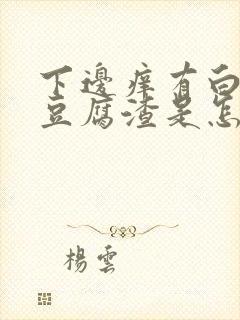 下邊痒有白
豆腐渣是怎
楊雲